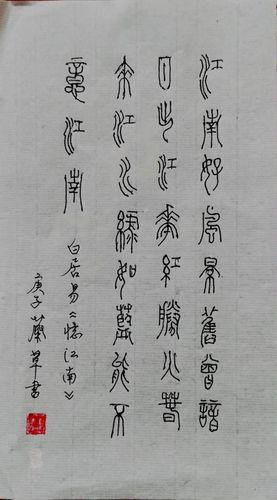 江南好風景舊曾諳
日出江華紅勝火春
來江水綠如藍能不
意江南
白居易《憶江南》
庚子蘭草書